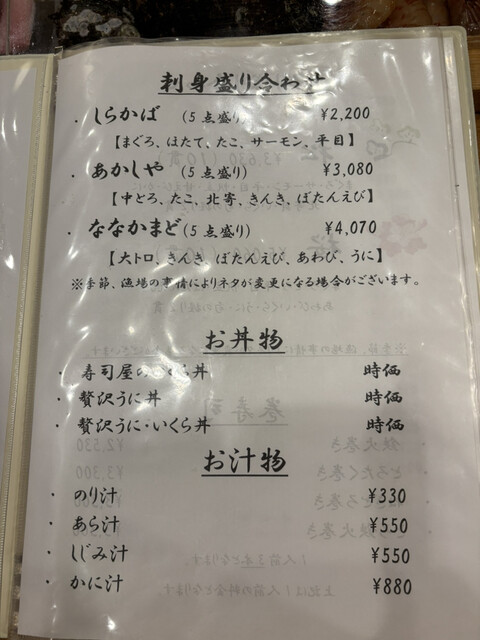 刺身盛り合わせ
・しらかば (5点盛り) ¥2,200
【まぐろ、ほたて、たこ、サーモン、平目】
・あかしや (5点盛り) ¥3,080
【中とろ、たこ、北寄、きんき、ぼたんえび】
・ななかまど(5点盛り) ¥4,070
【大トロ、きんき、ぼたんえび、あわび、うに】
※季節、漁場の事情によりネタが変更になる場合がございます。
お丼物
・寿司屋のいくら丼 時価
・贅沢うに丼 時価
・贅沢うに・いくら丼 時価
お汁物
・のり汁 ¥330
・あら汁 ¥550
・しじみ汁 ¥550
・かに汁 ¥880